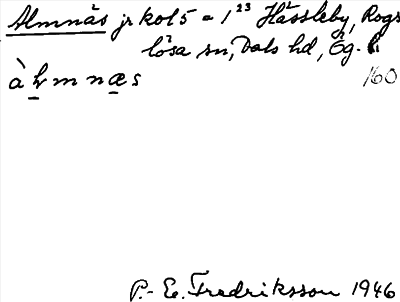 Almnäs jr kol 5 = 1²³ Hässleby, Rogs
lösa sn, Dals hd, Ög.
160
à l m n æ s
P.-E. Fredriksson 1946